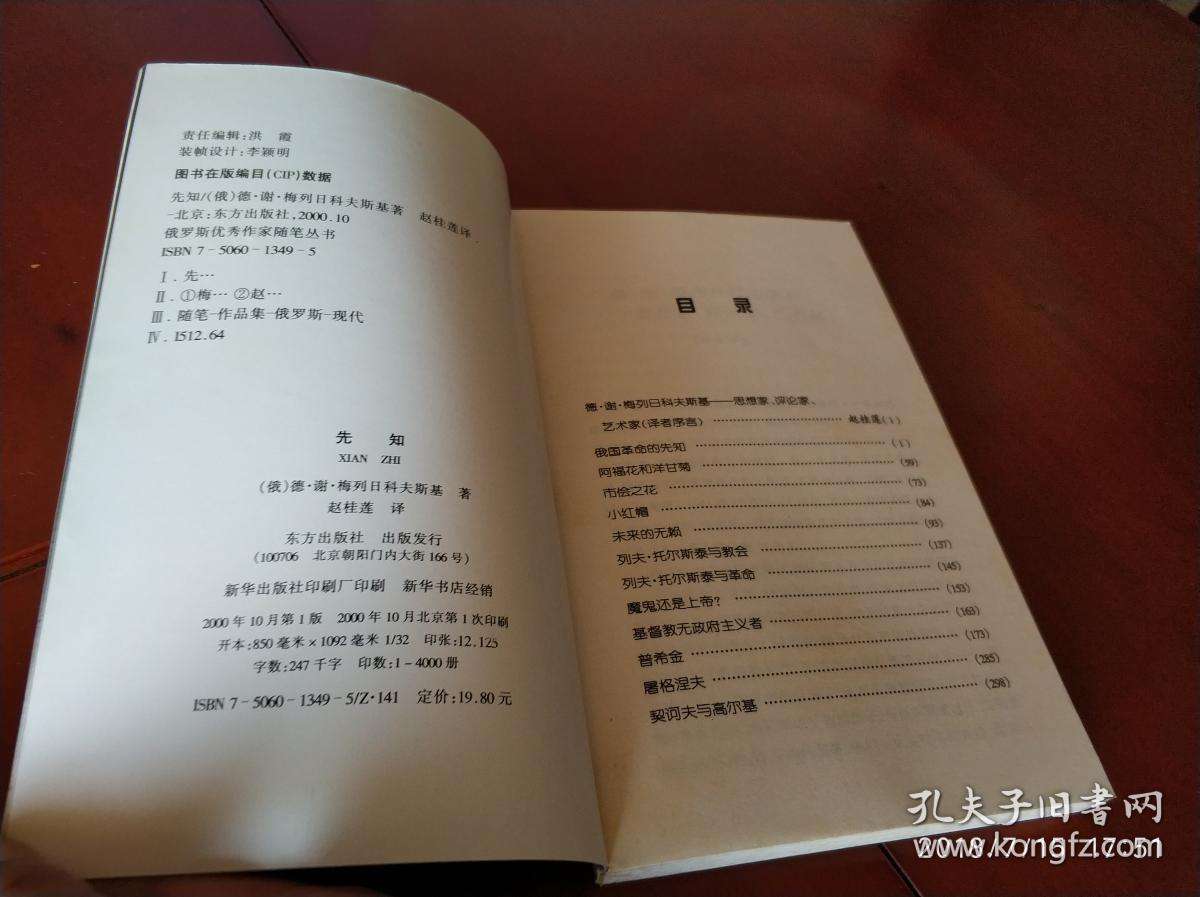 责任编辑:洪　霞
装帧设计:李颖明
图书在版编目(CIP)数据
先知/(俄)德·谢·梅列日科夫斯基著　赵桂莲译.
-北京:东方出版社,2000.10
俄罗斯优秀作家随笔丛书
ISBN 7-5060-1349-5
Ⅰ.先…
Ⅱ.①梅… ②赵…
Ⅲ.随笔-作品集-俄罗斯-现代
Ⅳ.I512.64
先　知
XIAN ZHI
(俄)德·谢·梅列日科夫斯基　著
赵桂莲　译
东方出版社　出版发行
(100706　北京朝阳门内大街166号)
新华出版社印刷厂印刷　新华书店经销
2000年10月第1版　2000年10月北京第1次印刷
开本:850毫米×1092毫米 1/32　印张:12.125
字数:247千字　印数:1-4000册
ISBN 7-5060-1349-5/Z·141　定价:19.80元
目　录
德·谢·梅列日科夫斯基——思想家、评论家、
艺术家(译者序言)……………赵桂莲(1)
俄国革命的先知……………(1)
阿福花和洋甘菊……………(59)
市侩之花……………(73)
小红帽……………(84)
未来的无赖……………(93)
列夫·托尔斯泰与教会……………(137)
列夫·托尔斯泰与革命……………(145)
魔鬼还是上帝?……………(153)
基督教无政府主义者……………(163)
普希金……………(173)
屠格涅夫……………(285)
契诃夫与高尔基……………(298)
孔夫子旧书网
www.kongfz.com